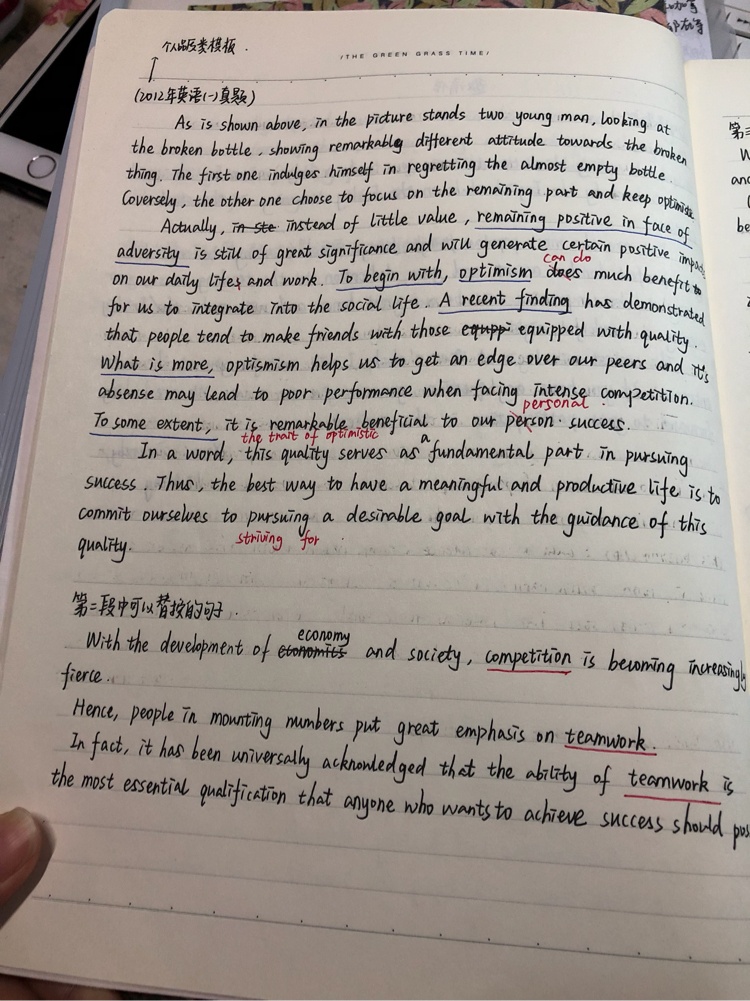 个人品质类模板.
/THE GREEN GRASS TIME/
(2012年英语(一)真题)
As is shown above, in the picture stands two young man, looking at
the broken bottle, showing remarkably different attitude towards the broken
thing. The first one indulges himself in regretting the almost empty bottle.
Coversely, the other one choose to focus on the remaining part and keep optimistic
Actually, in ste instead of little value, remaining positive in face of
adversity is still of great significance and will generate certain positive impact
can do
on our daily life, and work. To begin with, optimism does much benefit to
for us to integrate into the social life. A recent finding has demonstrated
that people tend to make friends with those equppi equipped with quality.
What is more, optismism helps us to get an edge over our peers and it's
absense may lead to poor performance when facing intense competition.
personal
To some extent, it is remarkable beneficial to our person success.
the trait of optimistic a
In a word, this quality serves as fundamental part in pursuing
success. Thus, the best way to have a meaningful and productive life is to
commit ourselves to pursuing a desirable goal with the guidance of this
striving for
quality.
第二段中可以替换的句子.
economy
With the development of economics and society, competition is becoming increasingly
fierce.
Hence, people in mounting numbers put great emphasis on teamwork.
In fact, it has been universally acknowledged that the ability of teamwork is
the most essential qualification that anyone who wants to achieve success should pos
第二
W
and
be